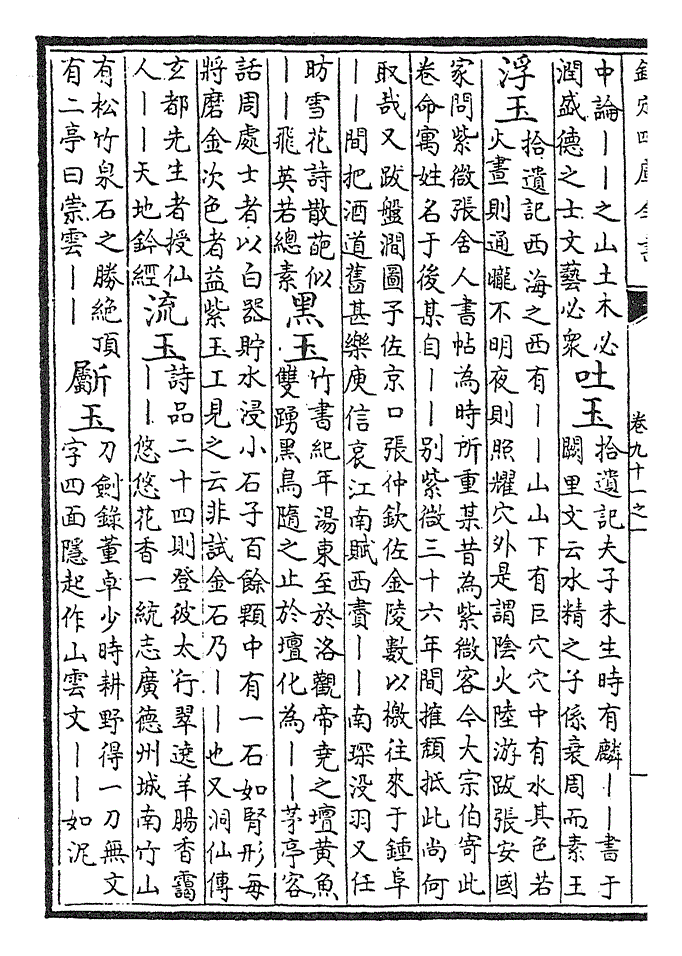 欽定四庫全書
卷九十一之一
中論——之山土木必
潤盛德之士文藝必衆
吐玉
拾遺記夫子未生時有麟——書于
闕里文云水精之子係衰周而素王
浮玉
拾遺記西海之西有——山山下有巨穴穴中有水其色若
火晝則通曨不明夜則照耀穴外是謂陰火陸游跋張安國
家問紫微張舍人書帖為時所重某昔為紫微客今大宗伯寄此
卷命寓姓名于後某自——別紫微三十六年間摧頹抵此尚何
取哉又跋盤澗圖予佐京口張仲欽佐金陵數以檄往來于鍾阜
——間把酒道舊甚樂庾信哀江南賦西賮——南琛没羽又任
昉雪花詩散葩似
——飛英若總素
黑玉
竹書紀年湯東至於洛觀帝堯之壇黄魚
雙踴黑鳥隨之止於壇化為——茅亭客
話周處士者以白器貯水浸小石子百餘顆中有一石如腎形每
將磨金次色者益紫玉工見之云非試金石乃——也又洞仙傳
玄都先生者授仙
人——天地鈐經
流玉
詩品二十四則登彼太行翠遶羊腸香靄
——悠悠花香一統志廣德州城南竹山
有松竹泉石之勝絶頂
有二亭曰崇雲——
斸玉
刀劍錄董卓少時耕野得一刀無文
字四面隱起作山雲文——如泥